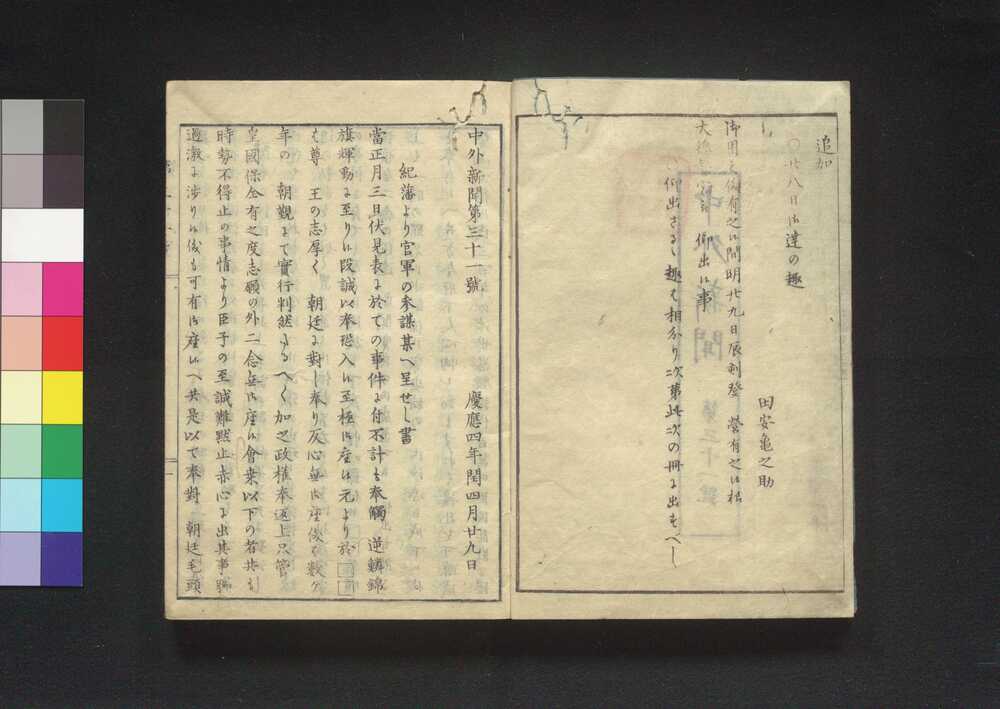 追加
〇廿八日御達の趣
田安亀之助
御用之儀有之候間明廿九日辰刻登　營有之候様
大總督宮被　仰出候事
仰出さるゝ趣も相分り次第此次の冊に出すべし
中外新聞第三十一號　慶應四年閏四月廿九日
紀藩より官軍の参謀某へ呈せし書
當正月三日伏見表に於ての事件に付不計も奉觸　逆鱗錦
旗輝動に至り候段誠以奉恐入候至極御座候元より於
も尊　王の志厚く　朝廷に對し奉り灰心無御座候儀は數个
年の　朝覲まて實行判然たるへく加之政權奉返上只管
皇國保全有之度志願の外二念無御座候會桒以下の者共引
時勢不得止の事情より臣子の至誠難黙止赤心に出其事跡
過激に渉り候儀も可有御座候へ共是以て奉對　朝廷毛頭